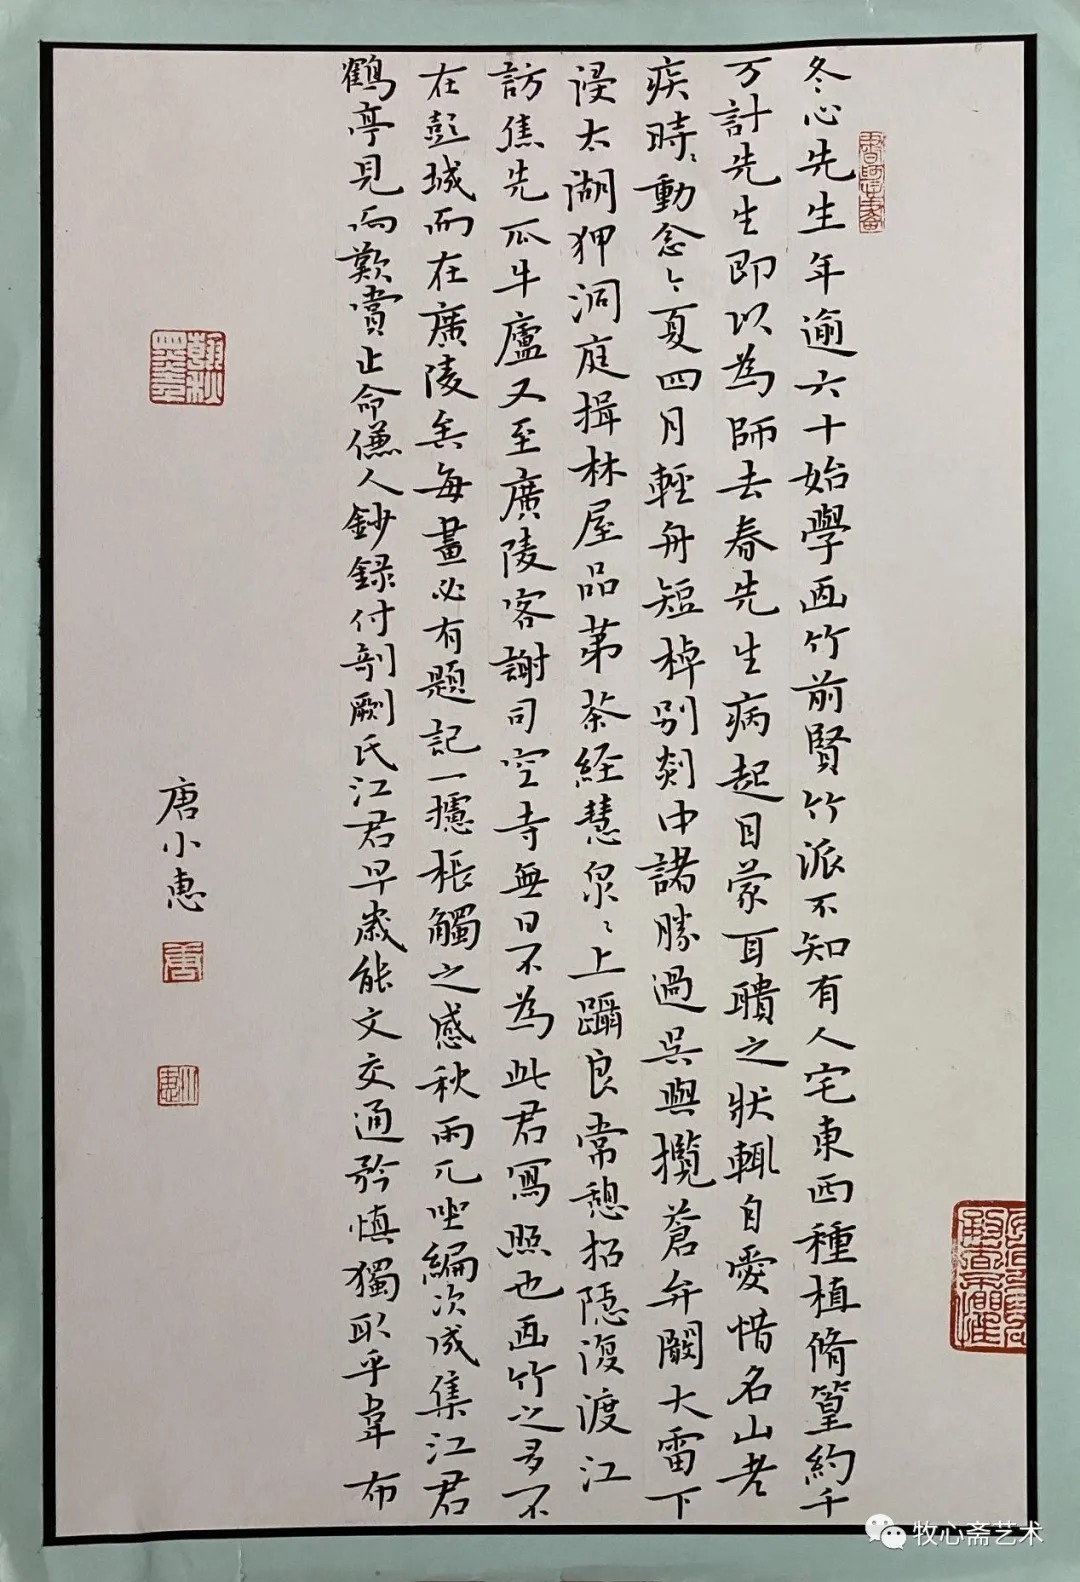 冬心先生年逾六十始學画竹前賢竹派不知有人宅東西種植脩篁約千
万計先生即以為師去春先生病起目蒙耳聵之狀輒自愛惜名山老
疾時〻動念〻夏四月輕舟短棹别剡中諸勝過吴興攬蒼弁闞大雷下
浸太湖狎洞庭揖林屋品苐茶経慧泉〻上躡良常憩招隱復渡江
訪焦先瓜牛廬又至廣陵客謝司空寺無日不為此君寫照也画竹之多不
在彭城而在廣陵矣每畫必有題記一攄棖觸之感秋雨兀坐編次成集江君
鶴亭見而歎賞止命傔人鈔録付剞劂氏江君早歲能文交通矜慎獨取乎韋布
唐小惠
牧心斋艺术